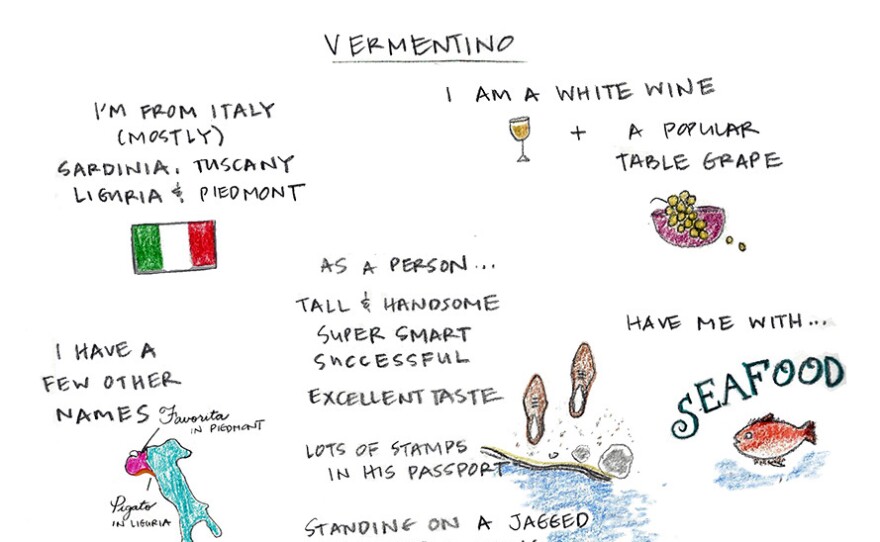 VERMENTINO
I'M FROM ITALY
(MOSTLY)
SARDINIA, TUSCANY
LIGURIA & PIEDMONT
I AM A WHITE WINE
+ A POPULAR
TABLE GRAPE
AS A PERSON...
TALL & HANDSOME
SUPER SMART
SUCCESSFUL
EXCELLENT TASTE
LOTS OF STAMPS
IN HIS PASSPORT
STANDING ON A JAGGED
HAVE ME WITH...
SEAFOOD
I HAVE A
FEW OTHER
NAMES
Favorita
IN PIEDMONT
Pigato
IN LIGURIA